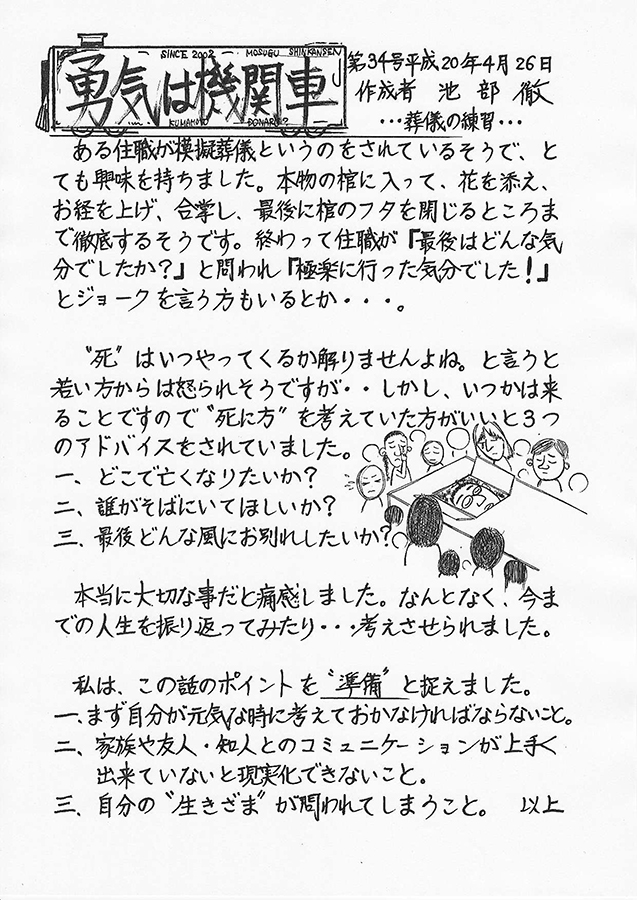 SINCE 2002 MOSUGU SHINKANSEN
勇気は機関車
KUMAMOTO DONARU?
第34号平成20年4月26日
作成者 池部 徹
・・・葬儀の練習・・・
ある住職が模擬葬儀というのをされているそうで、と
ても興味を持ちました。本物の棺に入って、花を添え、
お経を上げ、合掌し、最後に棺のフタを閉じるところま
で徹底するそうです。終わって住職が『最後はどんな気
分でしたか?』と問われ『極楽に行った気分でした!』
とジョークを言う方もいるとか・・・。
〝死〟はいつやってくるか解りませんよね。と言うと
若い方からは怒られそうですが・・しかし、いつかは来
ることですので〝死に方〟を考えていた方がいいと3つ
のアドバイスをされていました。
一、どこで亡くなりたいか?
二、誰がそばにいてほしいか?
三、最後どんな風にお別れしたいか?
本当に大切な事だと痛感しました。なんとなく、今ま
での人生を振り返ってみたり・・・考えさせられました。
私は、この話のポイントを〝準備〟と捉えました。
一、まず自分が元気な時に考えておかなければならないこと。
二、家族や友人・知人とのコミュニケーションが上手く
出来ていないと現実化できないこと。
三、自分の〝生きざま〟が問われてしまうこと。 以上